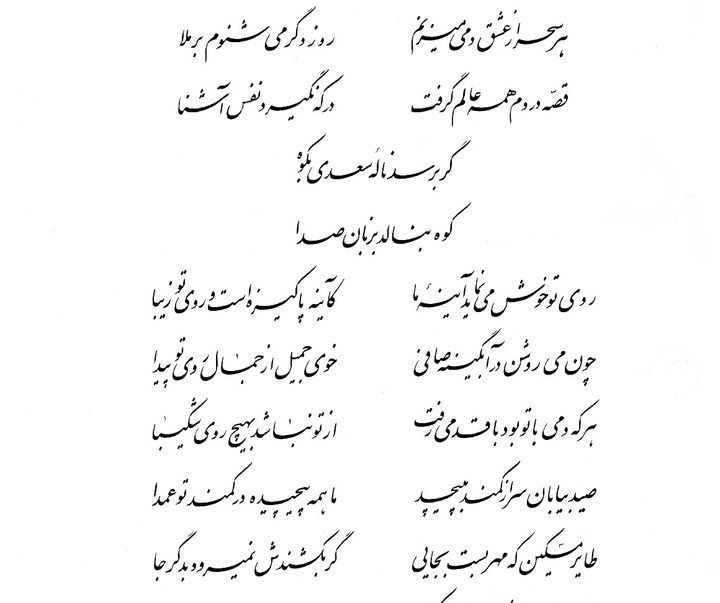 هر سحر از عشق دمی میزنم روز دگر می شنوم برملا
قصّه دردم همه عالم گرفت در که نگیرد نفس آشنا
گر برسد نالهٔ سعدی بکوه
کوه بنالد بزبان صدا
روی تو خوش می نماید آینهٔ ما کآینه پاکیزه است و روی تو زیبا
چون می روشن در آبگینه صافی خوی جمیل از جمال روی تو پیدا
هر که دمی با تو بود یا قدمی رفت از تو نباشد بهیچ روی شکیبا
صید بیابان سر از کمند بپیچد ما همه پیچیده در کمند تو عمدا
طایر مسکین که مهر بست بجایی گر بکشندش نمیرود بدگر جا